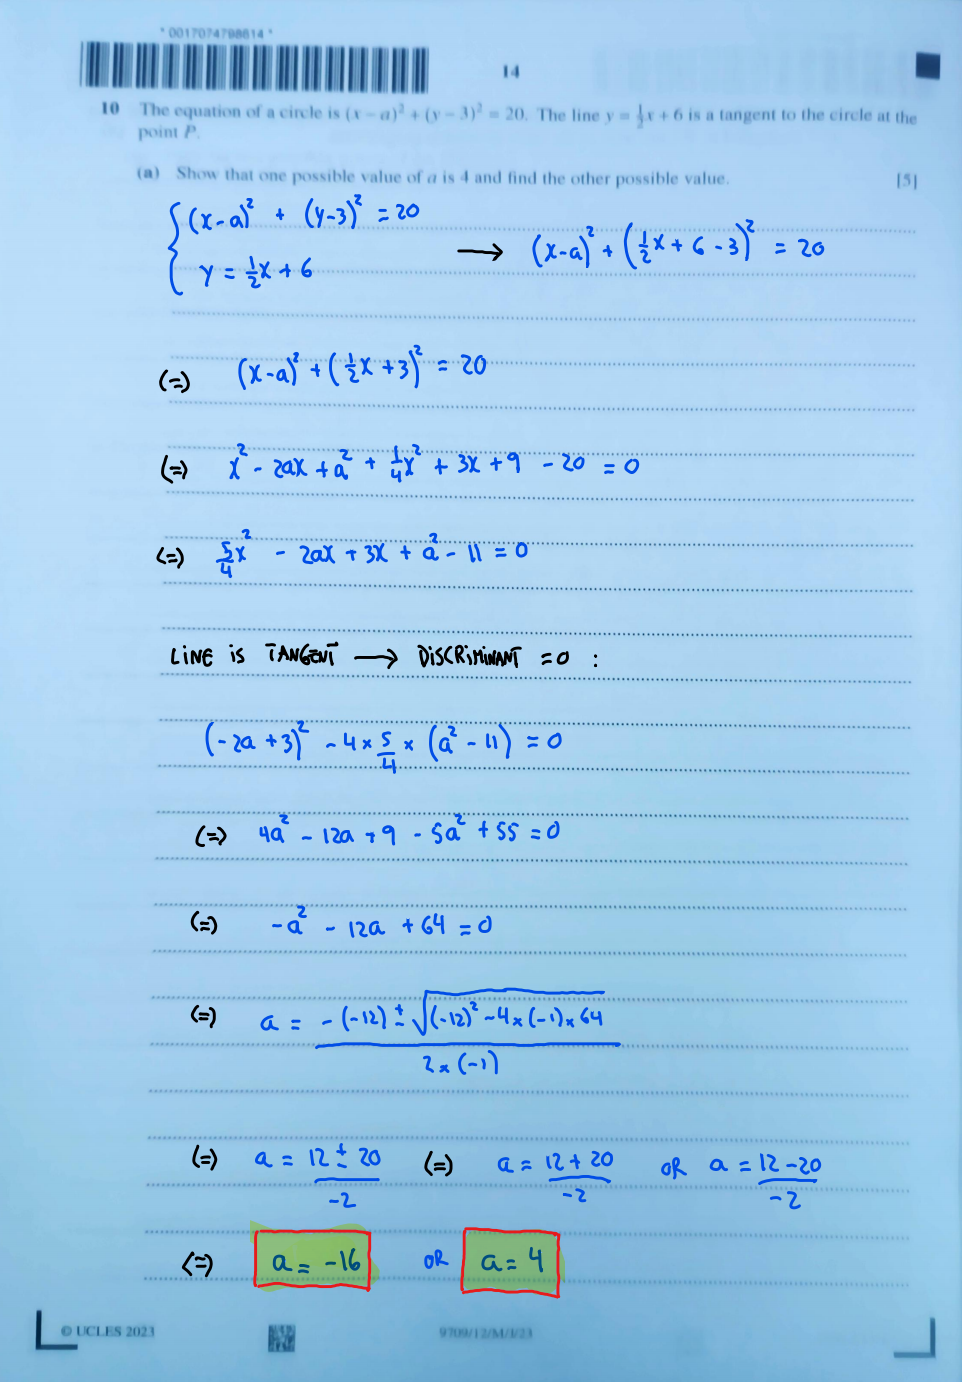 * 0017074798814 *
14
10 The equation of a circle is (x − a)² + (y − 3)² = 20. The line y = ½x + 6 is a tangent to the circle at the
point P.
(a) Show that one possible value of a is 4 and find the other possible value. [5]
{ (x-a)² + (y-3)² = 20
y = ½x + 6 → (x-a)² + (½x + 6 - 3)² = 20
(=) (x-a)² + (½x + 3)² = 20
(=) x² - 2ax + a² + ¼x² + 3x + 9 - 20 = 0
(=) 5/4x² - 2ax + 3x + a² - 11 = 0
LINE IS TANGENT → DISCRIMINANT = 0 :
(-2a + 3)² - 4 × 5/4 × (a² - 11) = 0
(=) 4a² - 12a + 9 - 5a² + 55 = 0
(=) -a² - 12a + 64 = 0
(=) a = -(-12) ± √(-12)² - 4 × (-1) × 64 / 2 × (-1)
(=) a = 12 ± 20 / -2 (=) a = 12 + 20 / -2 OR a = 12 - 20 / -2
(=) a = -16 OR a = 4
© UCLES 2023 9709/12/M/J/23